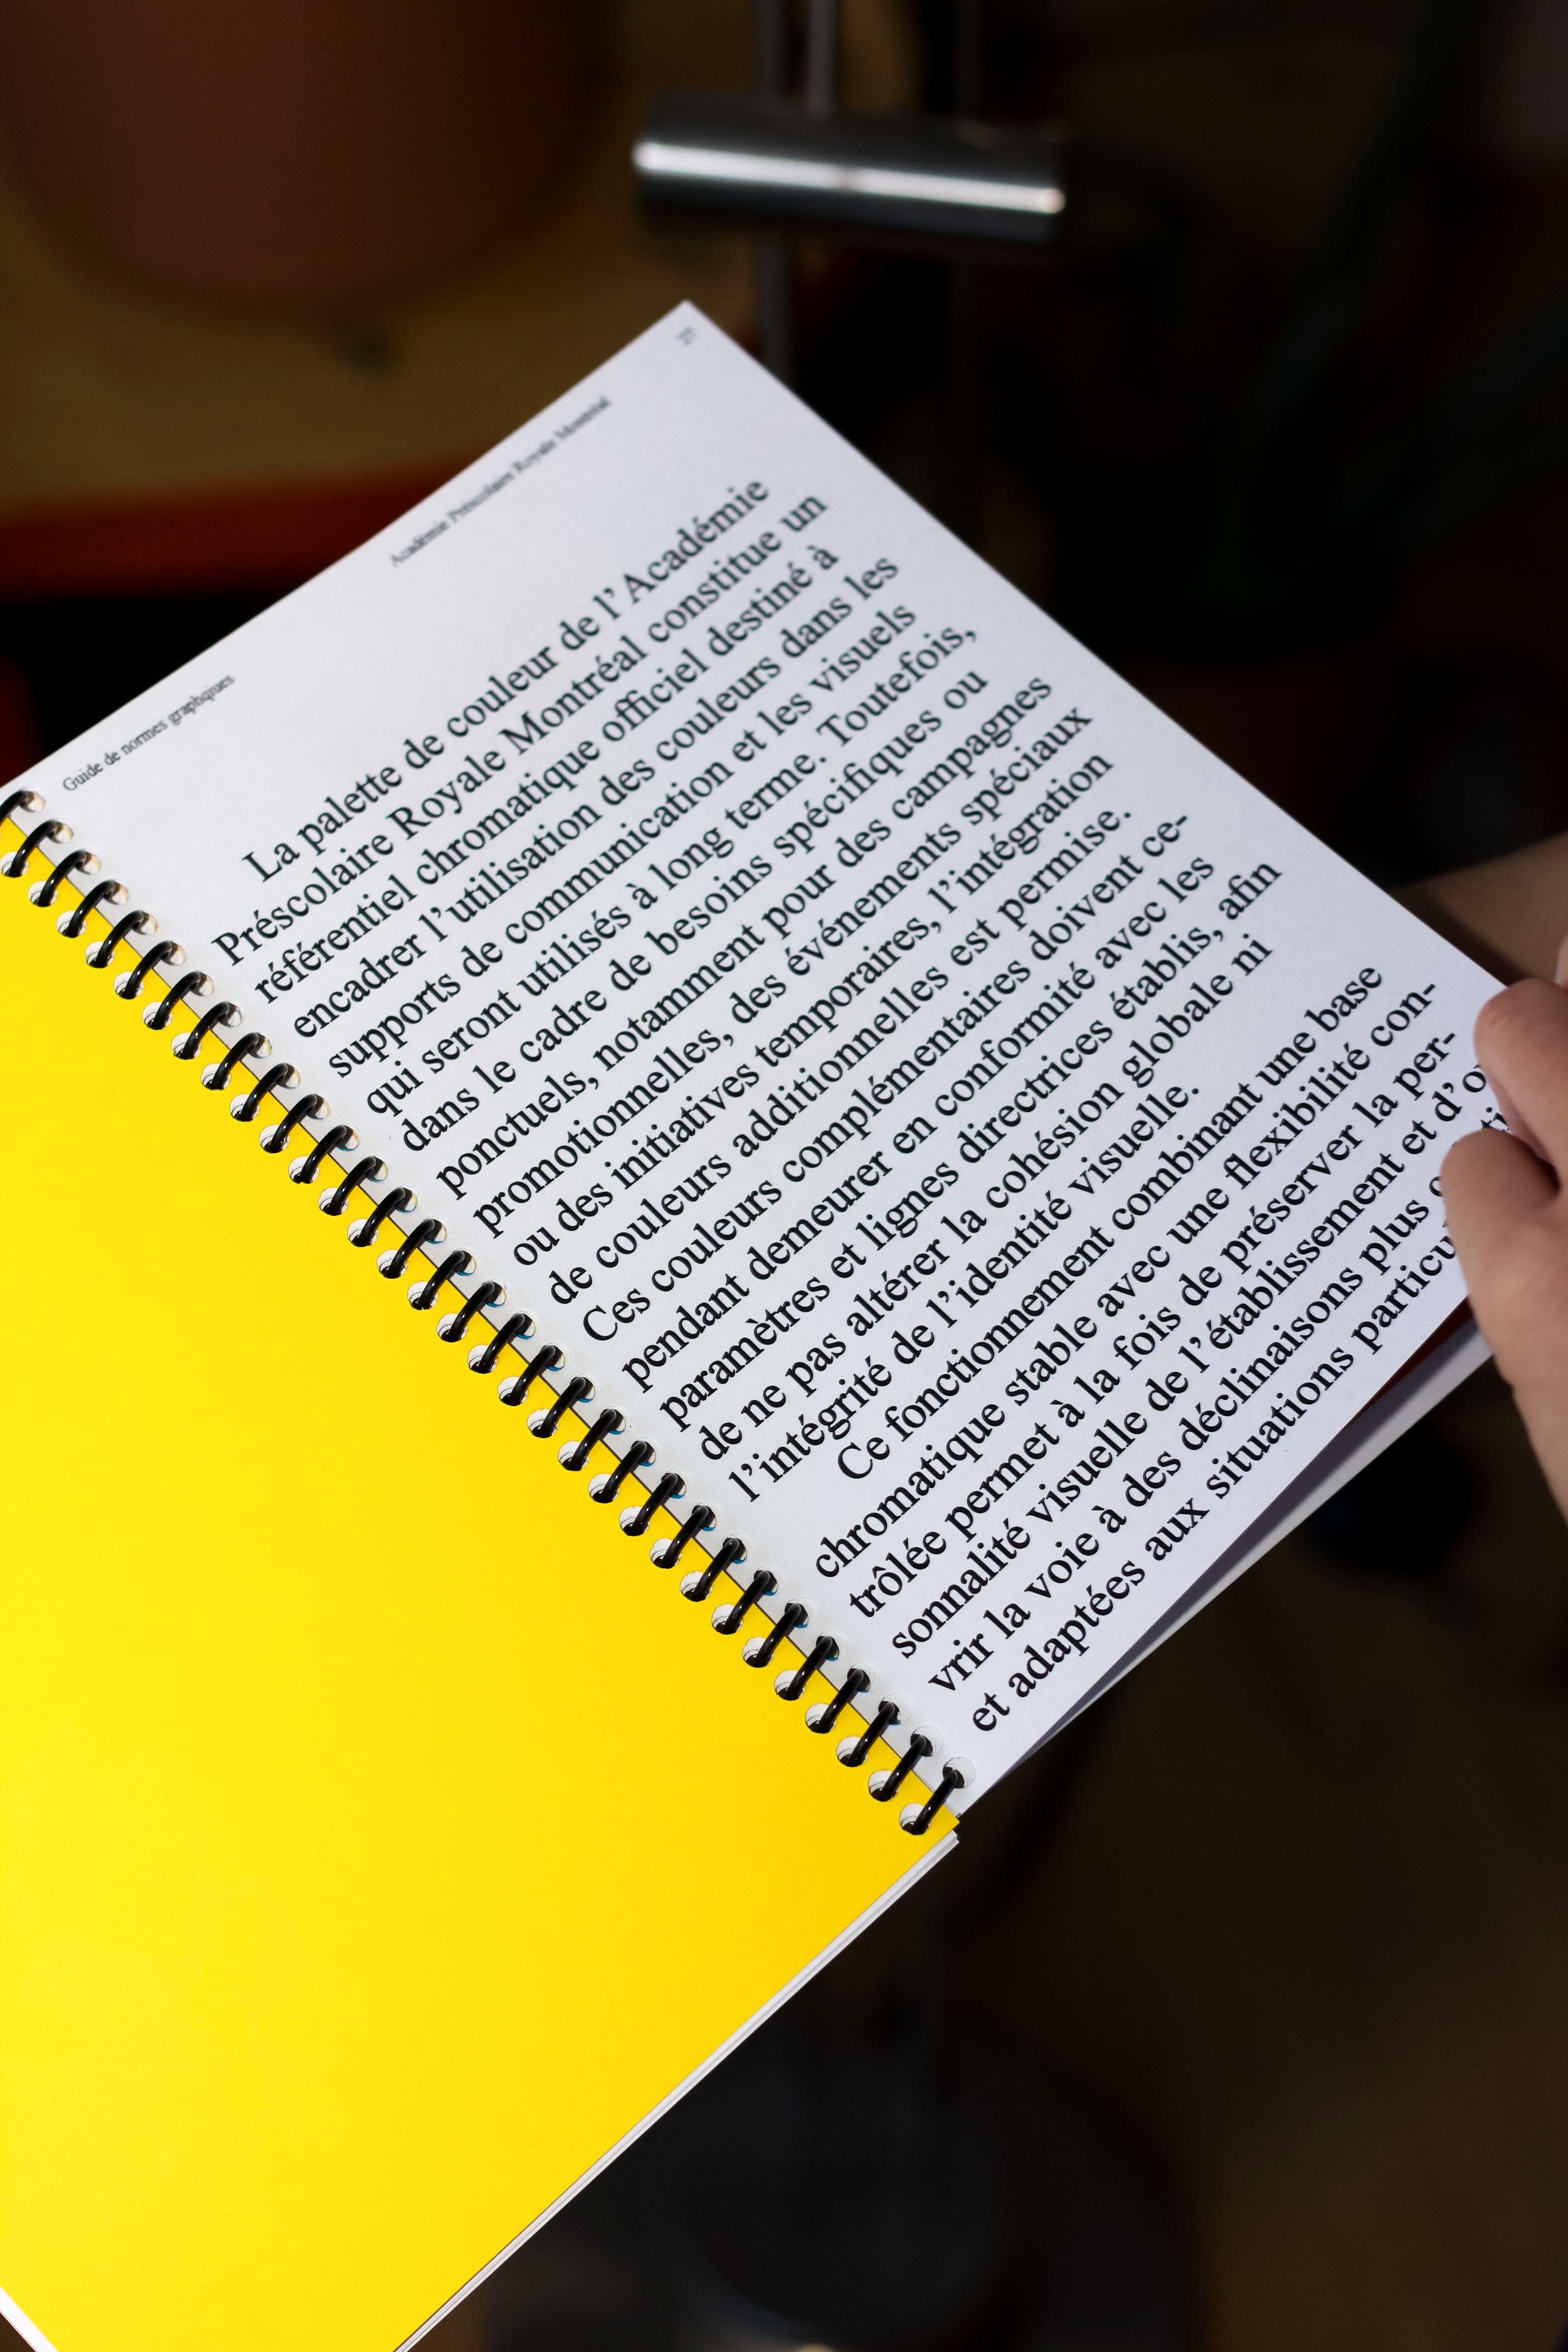 Guide de normes graphqiues
Académie Préscolaire Royale Montréal
27
La palette de couleur de l’Académie
Préscolaire Royale Montréal constitue un
référentiel chromatique officiel destiné à
encadrer l’utilisation des couleurs dans les
supports de communication et les visuels
qui seront utilisés à long terme. Toutefois,
dans le cadre de besoins spécifiques ou
ponctuels, notamment pour des campagnes
promotionnelles, des événements spéciaux
ou des initiatives temporaires, l’intégration
de couleurs additionnelles est permise.
Ces couleurs complémentaires doivent ce-
pendant demeurer en conformité avec les
paramètres et lignes directrices établis, afin
de ne pas altérer la cohésion globale ni
l’intégrité de l’identité visuelle.
Ce fonctionnement combinant une base
chromatique stable avec une flexibilité con-
trôlée permet à la fois de préserver la per-
sonnalité visuelle de l’établissement et
vrir la voie à des déclinaisons plus
et adaptées aux situations